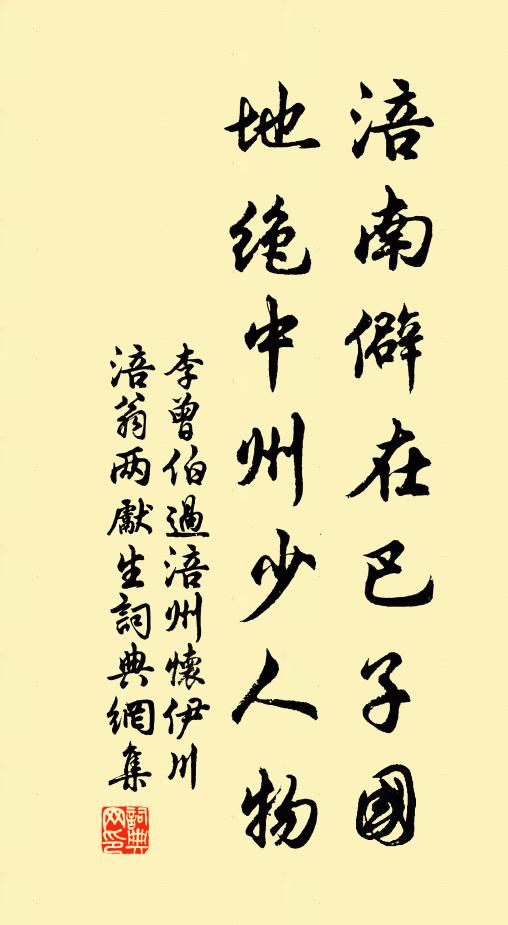 涪南僻在巴子國
地絶中州少人物
李曾伯過涪州懷伊川
涪翁两獻生詞典網集
詞典网印